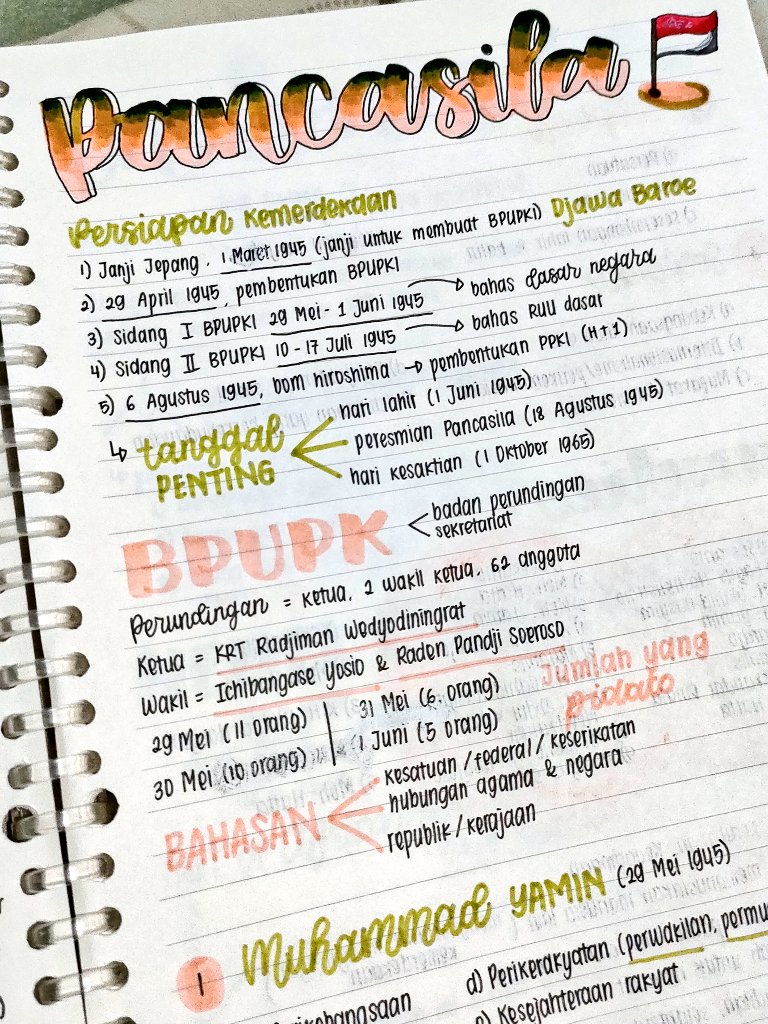 Pancasila
Persiapan Kemerdekaan
1) Janji Jepang. 1 Maret 1945 (janji untuk membuat BPUPKI) Djawa Baroe
2) 29 April 1945, pembentukan BPUPKI
3) Sidang I BPUPKI 29 Mei - 1 Juni 1945 → bahas dasar negara
4) Sidang II BPUPKI 10 - 17 Juli 1945 → bahas RUU dasar
5) 6 Agustus 1945, bom hiroshima → pembentukan PPKI (H+1)
↳ tanggal PENTING
hari lahir (1 Juni 1945)
peresmian Pancasila (18 Agustus 1945)
hari kesaktian (1 Oktober 1965)
BPUPK
badan perundingan
sekretariat
Perundingan = ketua, 2 wakil ketua, 62 anggota
Ketua = KRT Radjiman Wedyodiningrat
Wakil = Ichibangase Yosio & Raden Pandji Soeroso
29 Mei (11 orang)
30 Mei (10 orang)
31 Mei (6 orang)
1 Juni (5 orang)
Jumlah yang
pidato
BAHASAN
kesatuan / federal / keserikatan
hubungan agama & negara
republik / kerajaan
1 Muhammad YAMIN (29 Mei 1945)
d) Perikerakyatan (perwakilan,
Kesejahteraan rakyat